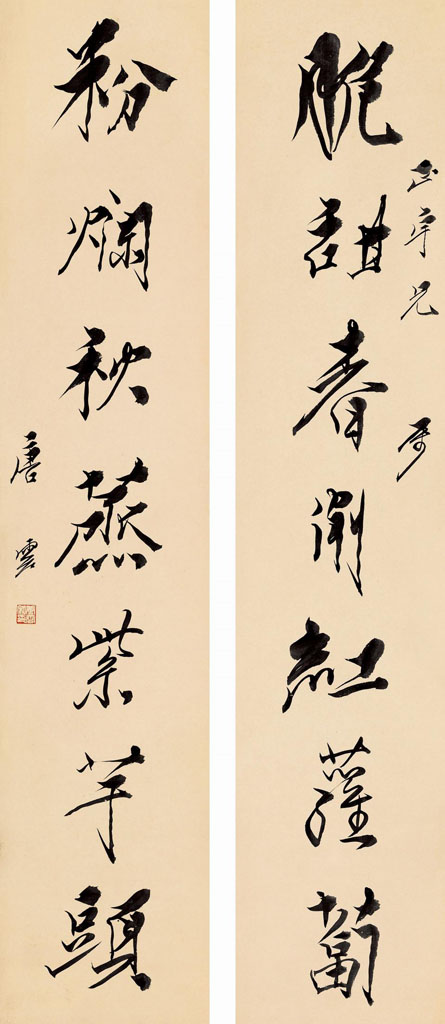 正宇兄属
脆甜春削紅蘿蔔
粉爛秋蒸紫芋頭
唐雲